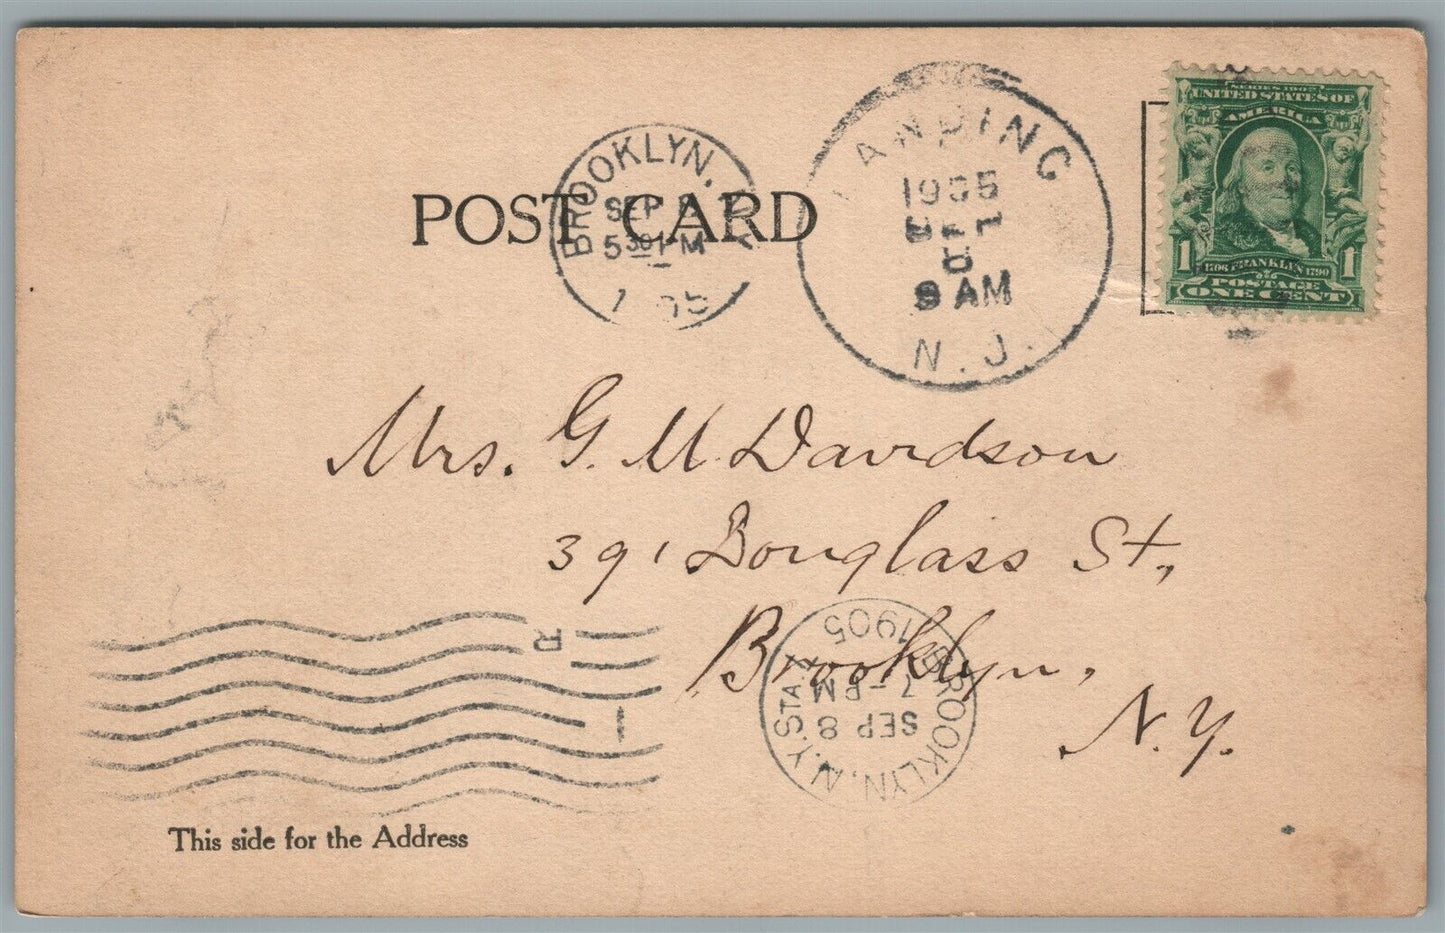 POST CARD
BROOKLYN, N.Y.
SEP 8
530 PM
1 05
LANDING
1905
SEP
9 AM
N.J.
SERIES 1902
UNITED STATES OF
AMERICA
1 1706 FRANKLIN 1790 1
POSTAGE
ONE CENT
Mrs. G. M. Davidson
391 Douglass St,
Brooklyn,
N.Y.
BROOKLYN, N.Y. STA.
SEP 8
7-PM
1905
R
1
This side for the Address